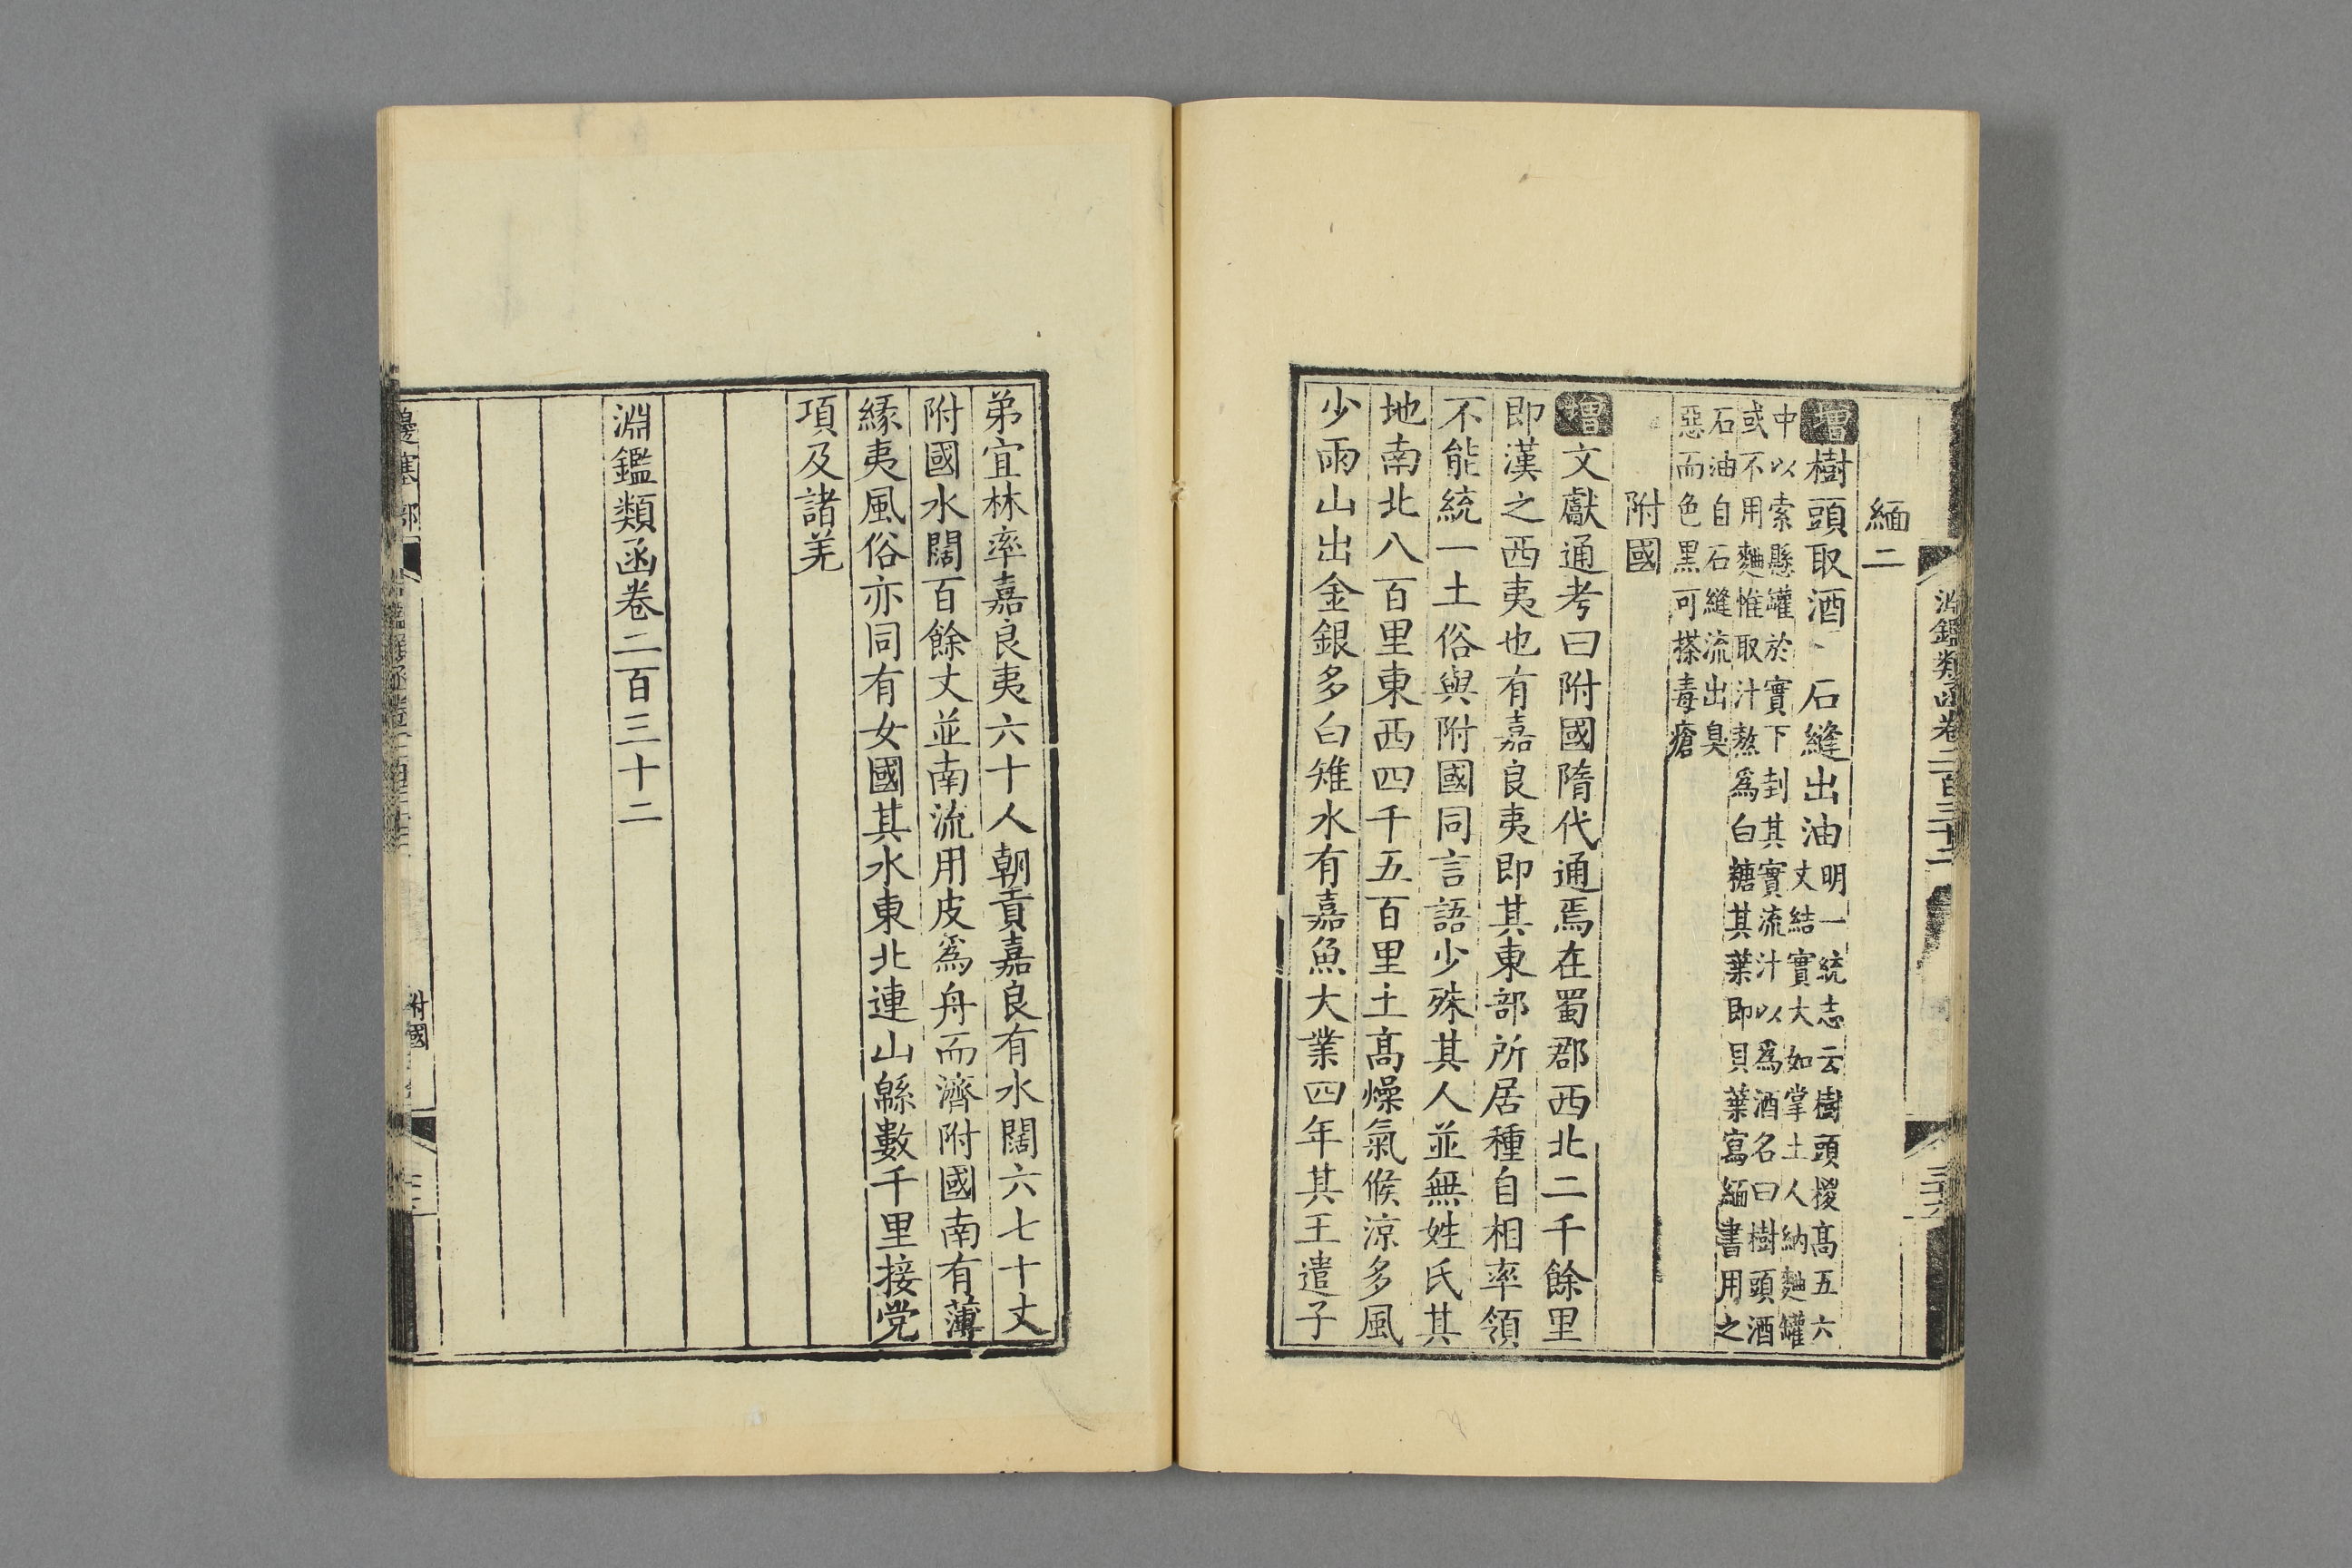 淵鑑類函卷二百三十二
三十六
緬二
增樹頭取酒 石縫出油明一統志云樹頭椶高五六
丈結實大如掌土人納麯罐
中以索懸罐於實下封其實流汁以爲酒名曰樹頭酒
或不用麯惟取汁熬爲白糖其葉即貝葉寫緬書用之
石油自石縫流出臭
惡而色黑可搽毒瘡
附國
增文獻通考曰附國隋代通焉在蜀郡西北二千餘里
即漢之西夷也有嘉良夷即其東部所居種自相率領
不能統一土俗與附國同言語少殊其人並無姓氏其
地南北八百里東西四千五百里土高燥氣候涼多風
少雨山出金銀多白雉水有嘉魚大業四年其王遣子
弟宜林率嘉良夷六十人朝貢嘉良有水闊六七十丈
附國水闊百餘丈並南流用皮爲舟而濟附國南有薄
緣夷風俗亦同有女國其水東北連山緜數千里接党
項及諸羌
淵鑑類函卷二百三十二
邊塞部
附國